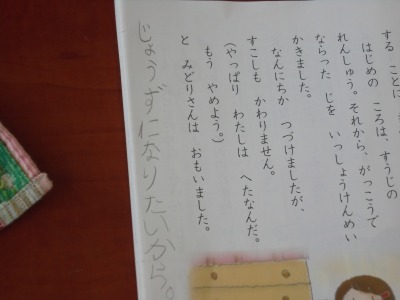 する ことに
はじめの ころは、すうじの
れんしゅう。それから、がっこうで
ならった じを いっしょうけんめい
かきました。
なんにちか つづけましたが、
すこしも かわりません。
(やっぱり わたしは へたなんだ。
もう やめよう。)
と みどりさんは おもいました。
じょうずになりたいから。